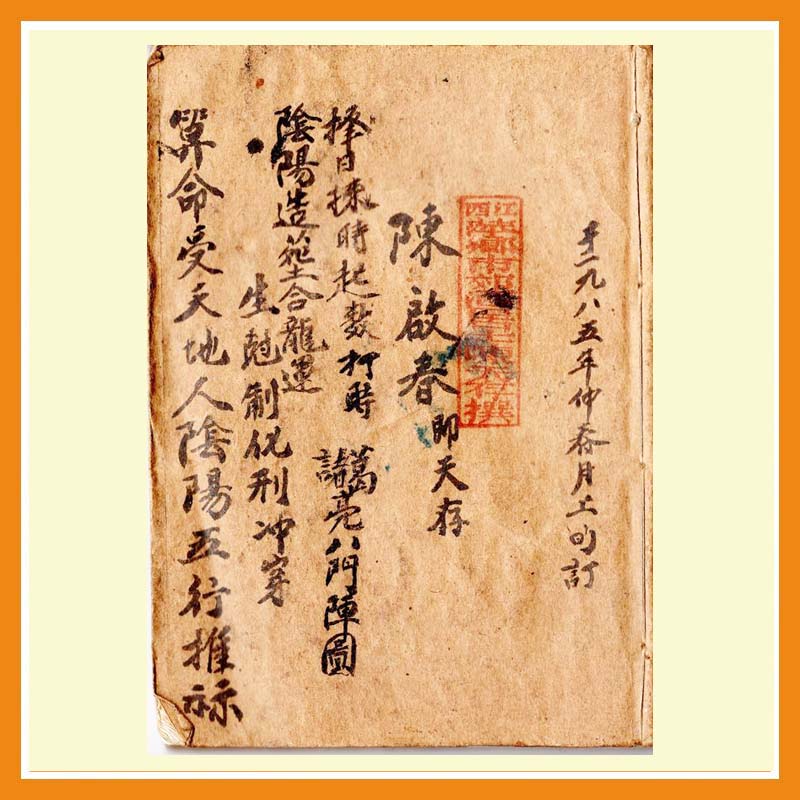 于一九八五年仲春月上旬訂
陳啟春即天存
擇日揀時起數打時 諸葛亮八門陣圖
陰陽造塋合龍運
生尅制化刑冲穿
算命受天地人陰陽五行推示